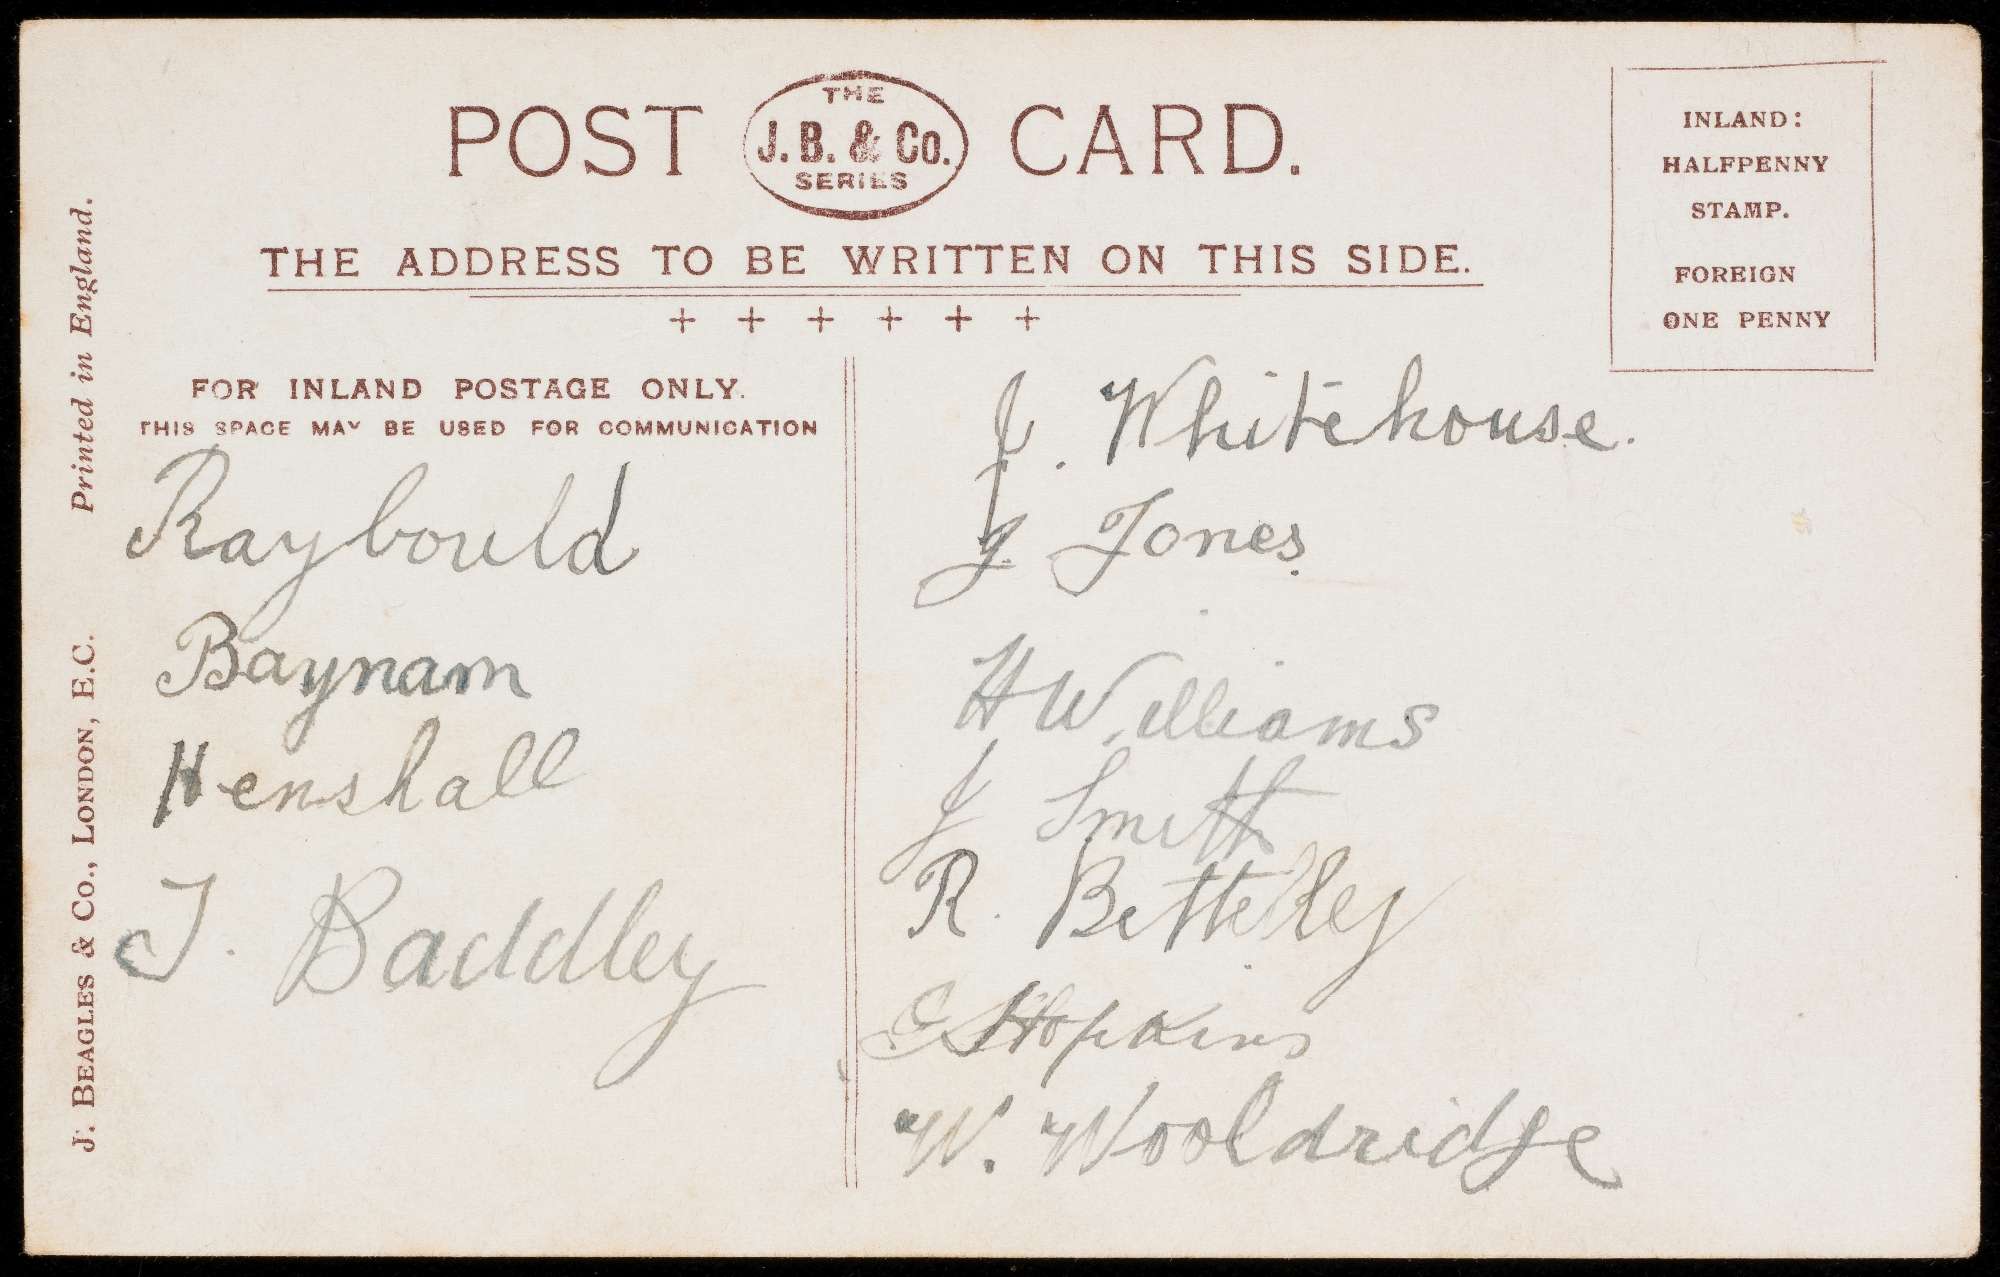 POST CARD.
THE
J. B. & Co.
SERIES
THE ADDRESS TO BE WRITTEN ON THIS SIDE.
INLAND:
HALFPENNY
STAMP.
FOREIGN
ONE PENNY
+ + + + + +
Printed in England.
J. BEAGLES & Co., LONDON, E.C.
FOR INLAND POSTAGE ONLY.
THIS SPACE MAY BE USED FOR COMMUNICATION
Raybould
Baynam
Henshall
J. Baddley
J. Whitehouse.
J. Jones.
H Williams
J Smith
R. Bettelley
G Hopkins
W. Wooldridge